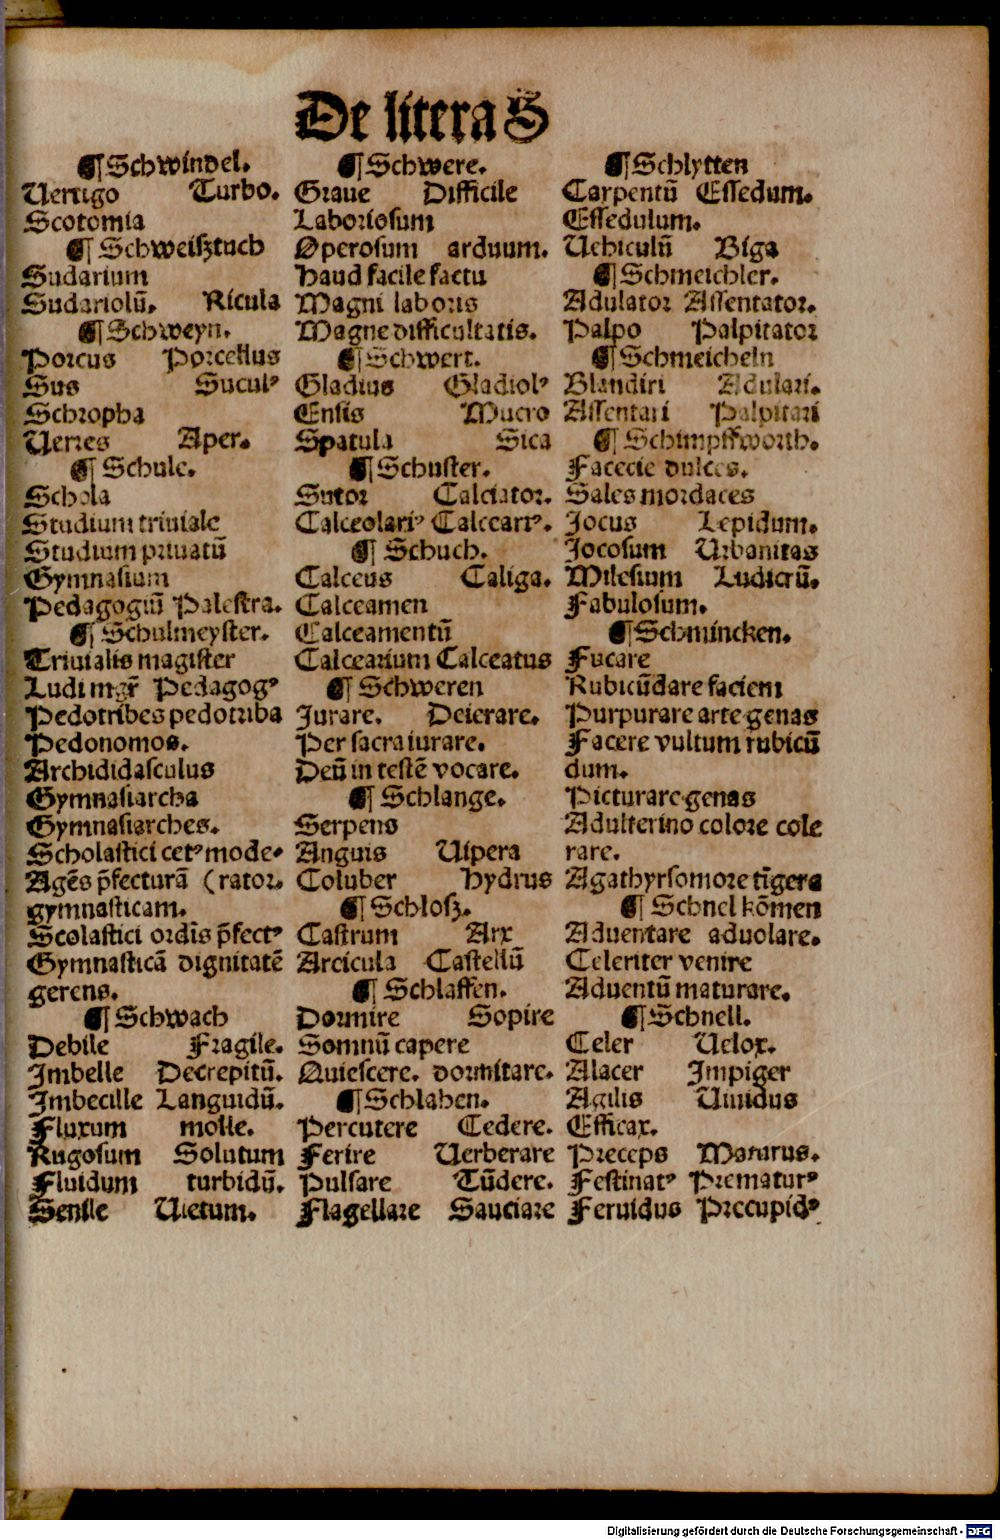 De litera S
¶ Schwindel.
Uertigo Turbo.
Scotomia
¶ Schweisztuch
Sudarium
Sudariolū. Ricula
¶ Schweyn.
Porcus Porcellus
Sus Suculꝰ
Schropha
Uerres Aper.
¶ Schule.
Schola
Studium triuiale
Studium priuatū
Gymnasium
Pedagogiū Palestra.
¶ Schulmeyster.
Triuialis magister
Ludi mgr̄ Pedagogꝰ
Pedotribes pedotriba
Pedonomos.
Archididasculus
Gymnasiarcha
Gymnasiarches.
Scholastici cetꝰ mode-
Agēs p̄fecturā (rator.
gymnasticam.
Scolastici ordīs p̄fectꝰ
Gymnasticā dignitatē
gerens.
¶ Schwach
Debile Fragile.
Imbelle Decrepitū.
Imbecille Languidū.
Fluxum molle.
Rugosum Solutum
Fluidum turbidū.
Senile Uietum.
¶ Schwere.
Graue Difficile
Laboriosum
Operosum arduum.
Haud facile factu
Magni laboris
Magne difficultatis.
¶ Schwert.
Gladius Gladiolꝰ
Ensis Mucro
Spatula Sica
¶ Schuster.
Sutor Calciator.
Calceolariꝰ Calcearrꝰ.
¶ Schuch.
Calceus Caliga.
Calceamen
Calceamentū
Calcearium Calceatus
¶ Schweren
Jurare. Deierare.
Per sacra iurare.
Deū in testē vocare.
¶ Schlange.
Serpens
Anguis Uipera
Coluber Hydrus
¶ Schlosz.
Castrum Arx
Arcicula Castellū
¶ Schlaffen.
Dormire Sopire
Somnū capere
Quiescere. dormitare.
¶ Schlahen.
Percutere Cedere.
Ferire Uerberare
Pulsare Tūdere.
Flagellare Sauciare
¶ Schlytten
Carpentū Essedum.
Essedulum.
Uehiculū Biga
¶ Schmeichler.
Adulator Assentator.
Palpo Palpitator
¶ Schmeicheln
Blandiri Adulari.
Assentari Palpitari
¶ Schimpffworth.
Facecie dulces.
Sales mordaces
Jocus Lepidum.
Jocosum Urbanitas
Milesium Ludicrū.
Fabulosum.
¶ Schmincken.
Fucare
Rubicūdare faciem
Purpurare arte genas
Facere vultum rubicū
dum.
Picturare genas
Adulterino colore cole
rare.
Agathyrso more tīgere
¶ Schnel kōmen
Aduentare aduolare.
Celeriter venire
Aduentū maturare.
¶ Schnell.
Celer Uelox.
Alacer Impiger
Agilis Uiuidus
Efficax.
Preceps Maturus.
Festinatꝰ Prematurꝰ
Feruidus Precupidꝰ
Digitalisierung gefördert durch die Deutsche Forschungsgemeinschaft - DFG